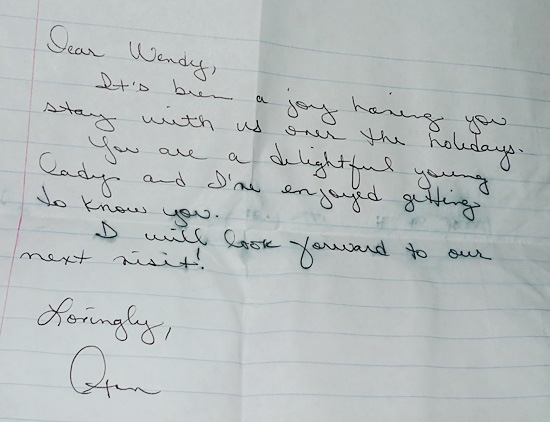 Dear Wendy,
It's been a joy having you
stay with us over the holidays.
You are a delightful young
lady and I've enjoyed getting
to know you.
I will look forward to our
next visit!
Lovingly,